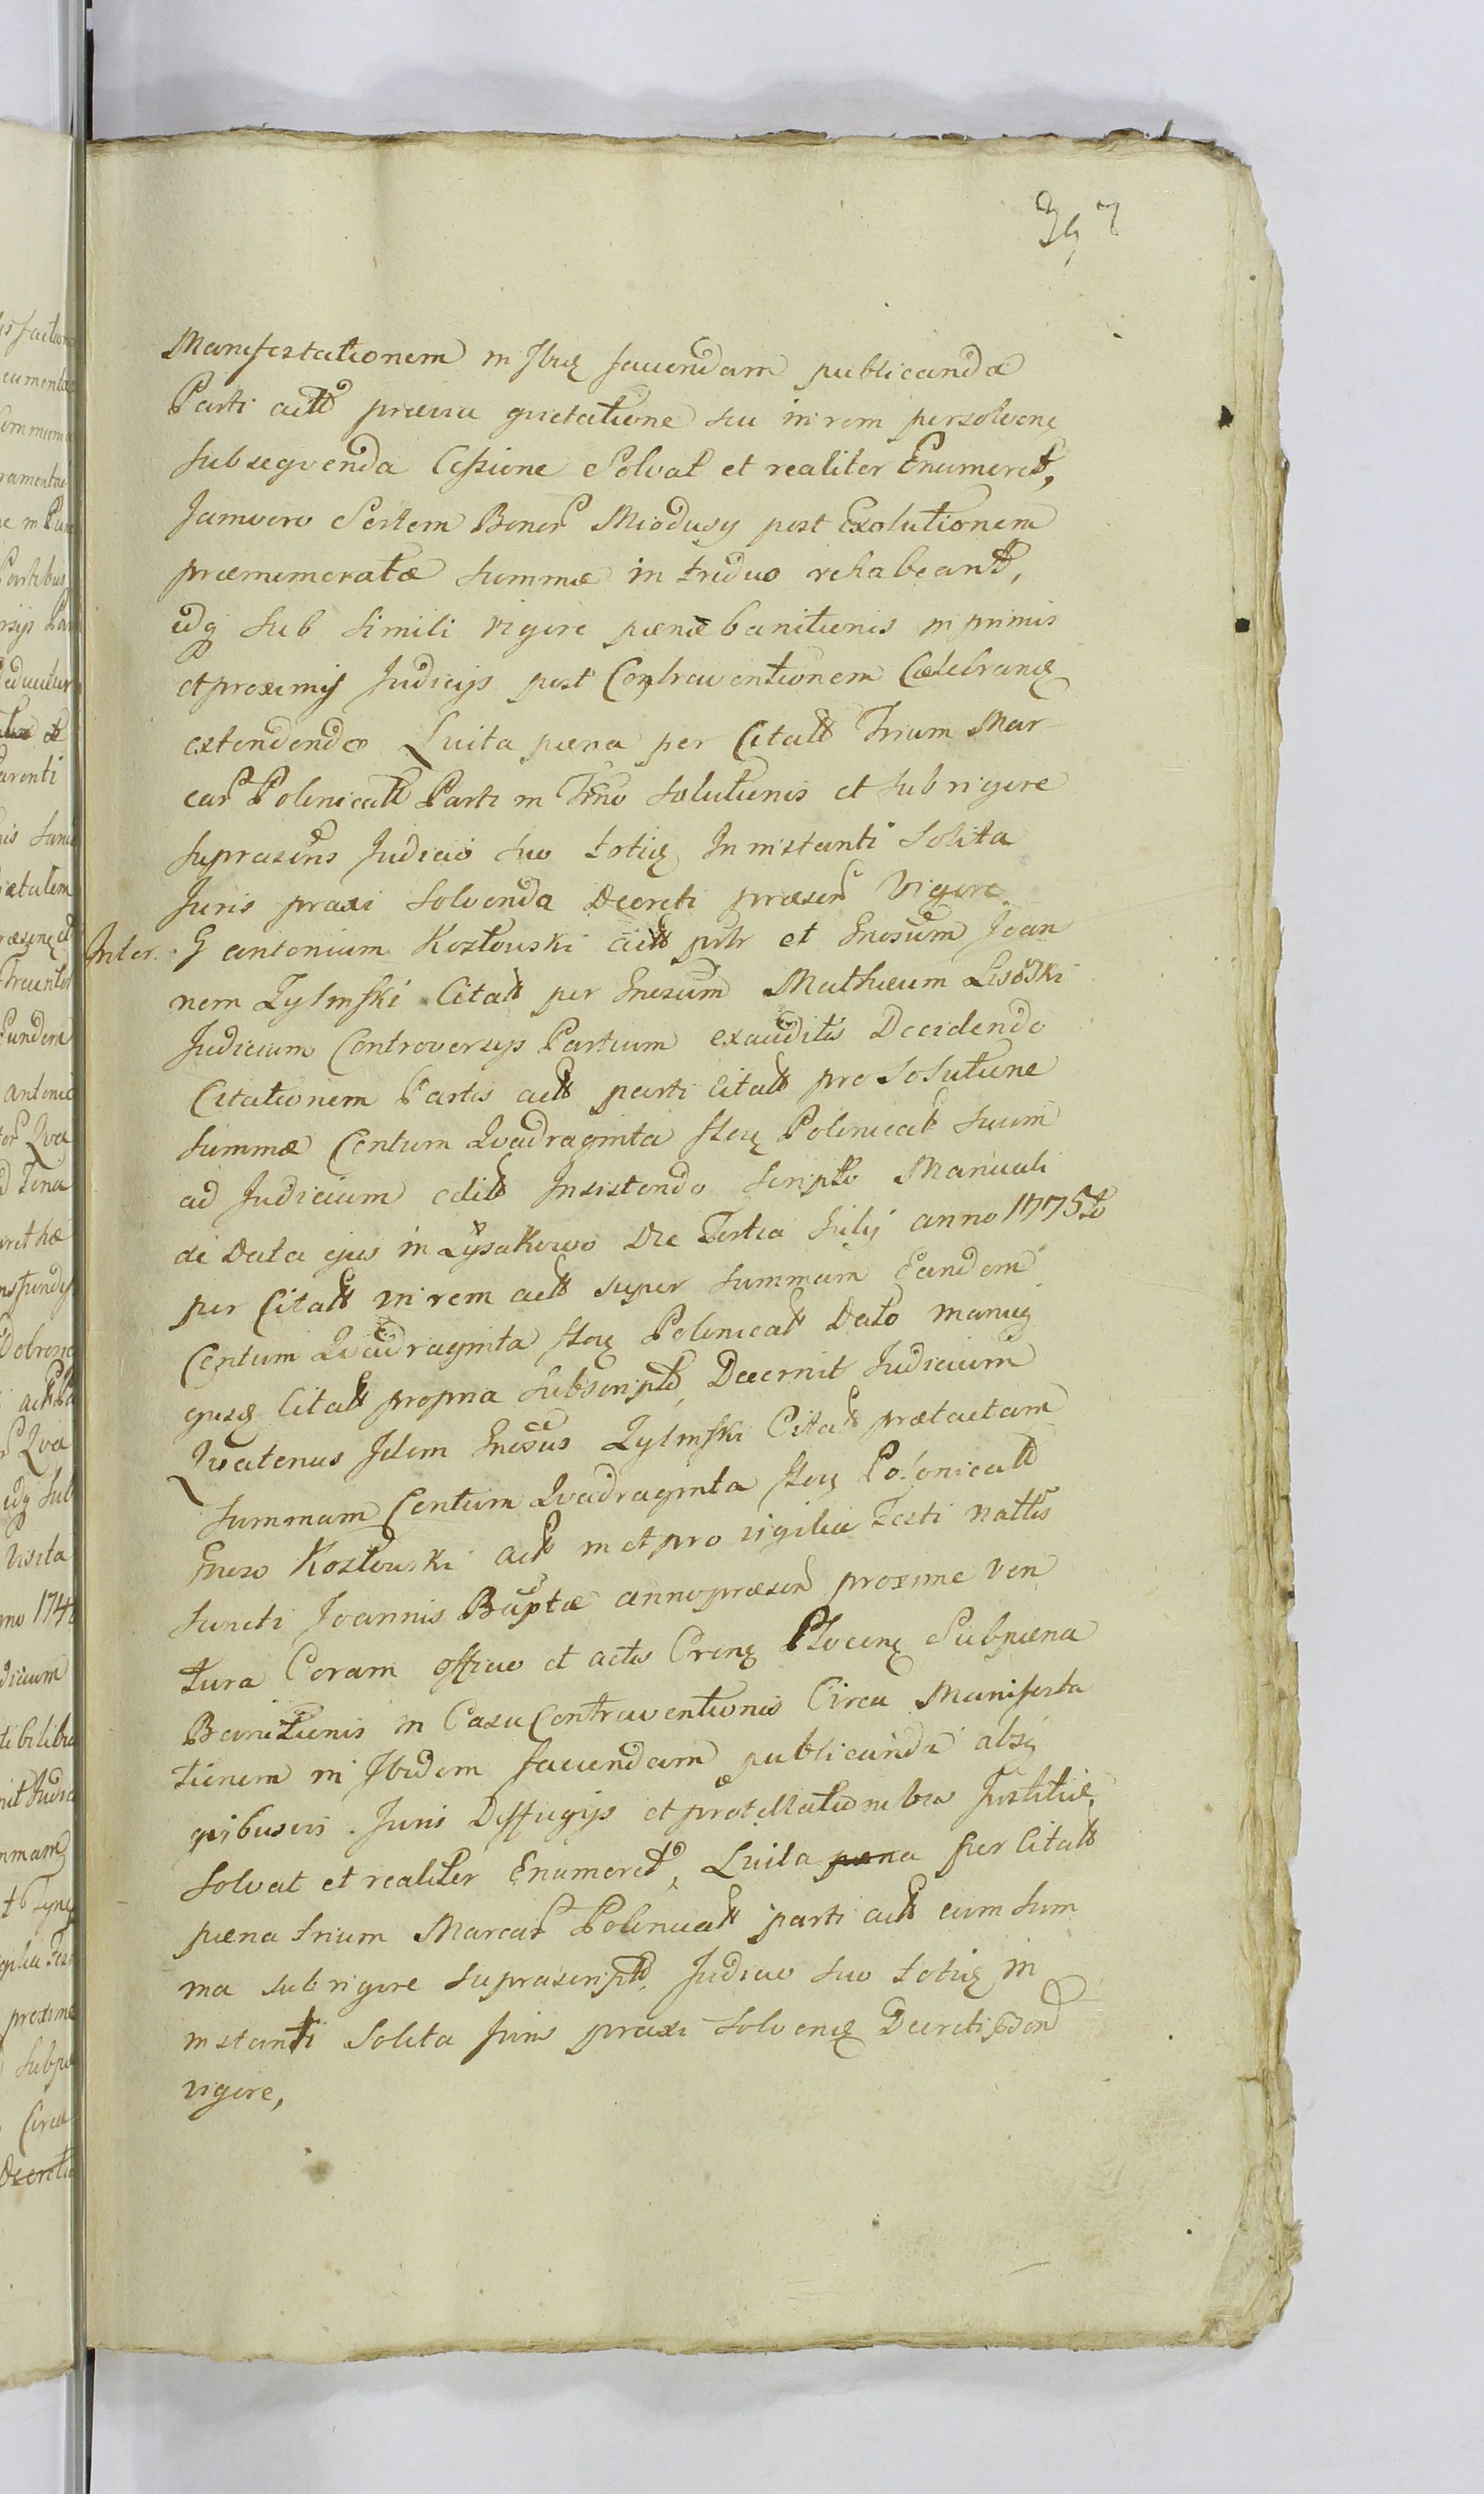 397
Manifestationem in Ibiq faciendam publicanda
Parti actt prævia quietatione seu in rem persolvenq
subsequenda Cessione Solvat et realiter Enumeret,
Jamvero Sortem Bonor Miodusy post Exolutionem
præmemoratæ summæ in triduo rehabeant,
idq sub simili vigore pænæ banitionis in primis
et proximis Judicijs post Contraventionem Cælebranq
extendendæ Luita pæna per Citatt Trium Mar
car Polonicatt Parti in Trno solutionis et sub rigore
suprascrns Judicio suo totiq In instanti solita
Juris praxi solvenda Decreti præsen vigore
Inter. G antonium Kozłouski actt prtr et Gnosum Joan
nem Zylinski Citatt per Gnosum Mathæum
Judicium Controversijs Partium exauditis Decidendo
Citationem Partis actt parti Citatt pro Solutione
summæ Centum Quadraginta flenq Polonicatt suum
ad Judicium edit Insistendo Scripto Manuali
de Data ejus in Łysakowo Die Tertia Julij anno 1775to
per Citatt in rem actt super summam Eandem
Centum Quadraginta flenq Polonicatt Dato manuq
ejusq Citatt propria subscript, Decernit Judicium
Quatenus Idem Gnosus Zylinski Citatt prætactam
summam Centum Quadraginta flenq Polonicatt
Gnoso Kozłouski actt in et pro vigilia Festi nattis
Sancti Joannis Baptæ anno præsen proxime ven
tura Coram officio et actis Crenq Plocenq Sub pæna
Banitionis in Casu Contraventionis Circa Manifesta
tionem in Ibidem faciendam publicandæ absq
quibusvis Juris Diffugijs et protellationibus Justitiæ,
solvat et realiter Enumeret, Luita pæna per Citatt
pæna trium Marcar Polonicatt parti actt cum sum
ma sub rigore suprascript Judicio suo totiq in
instanti Solita Juris praxi solvenq Decreti
vigore,